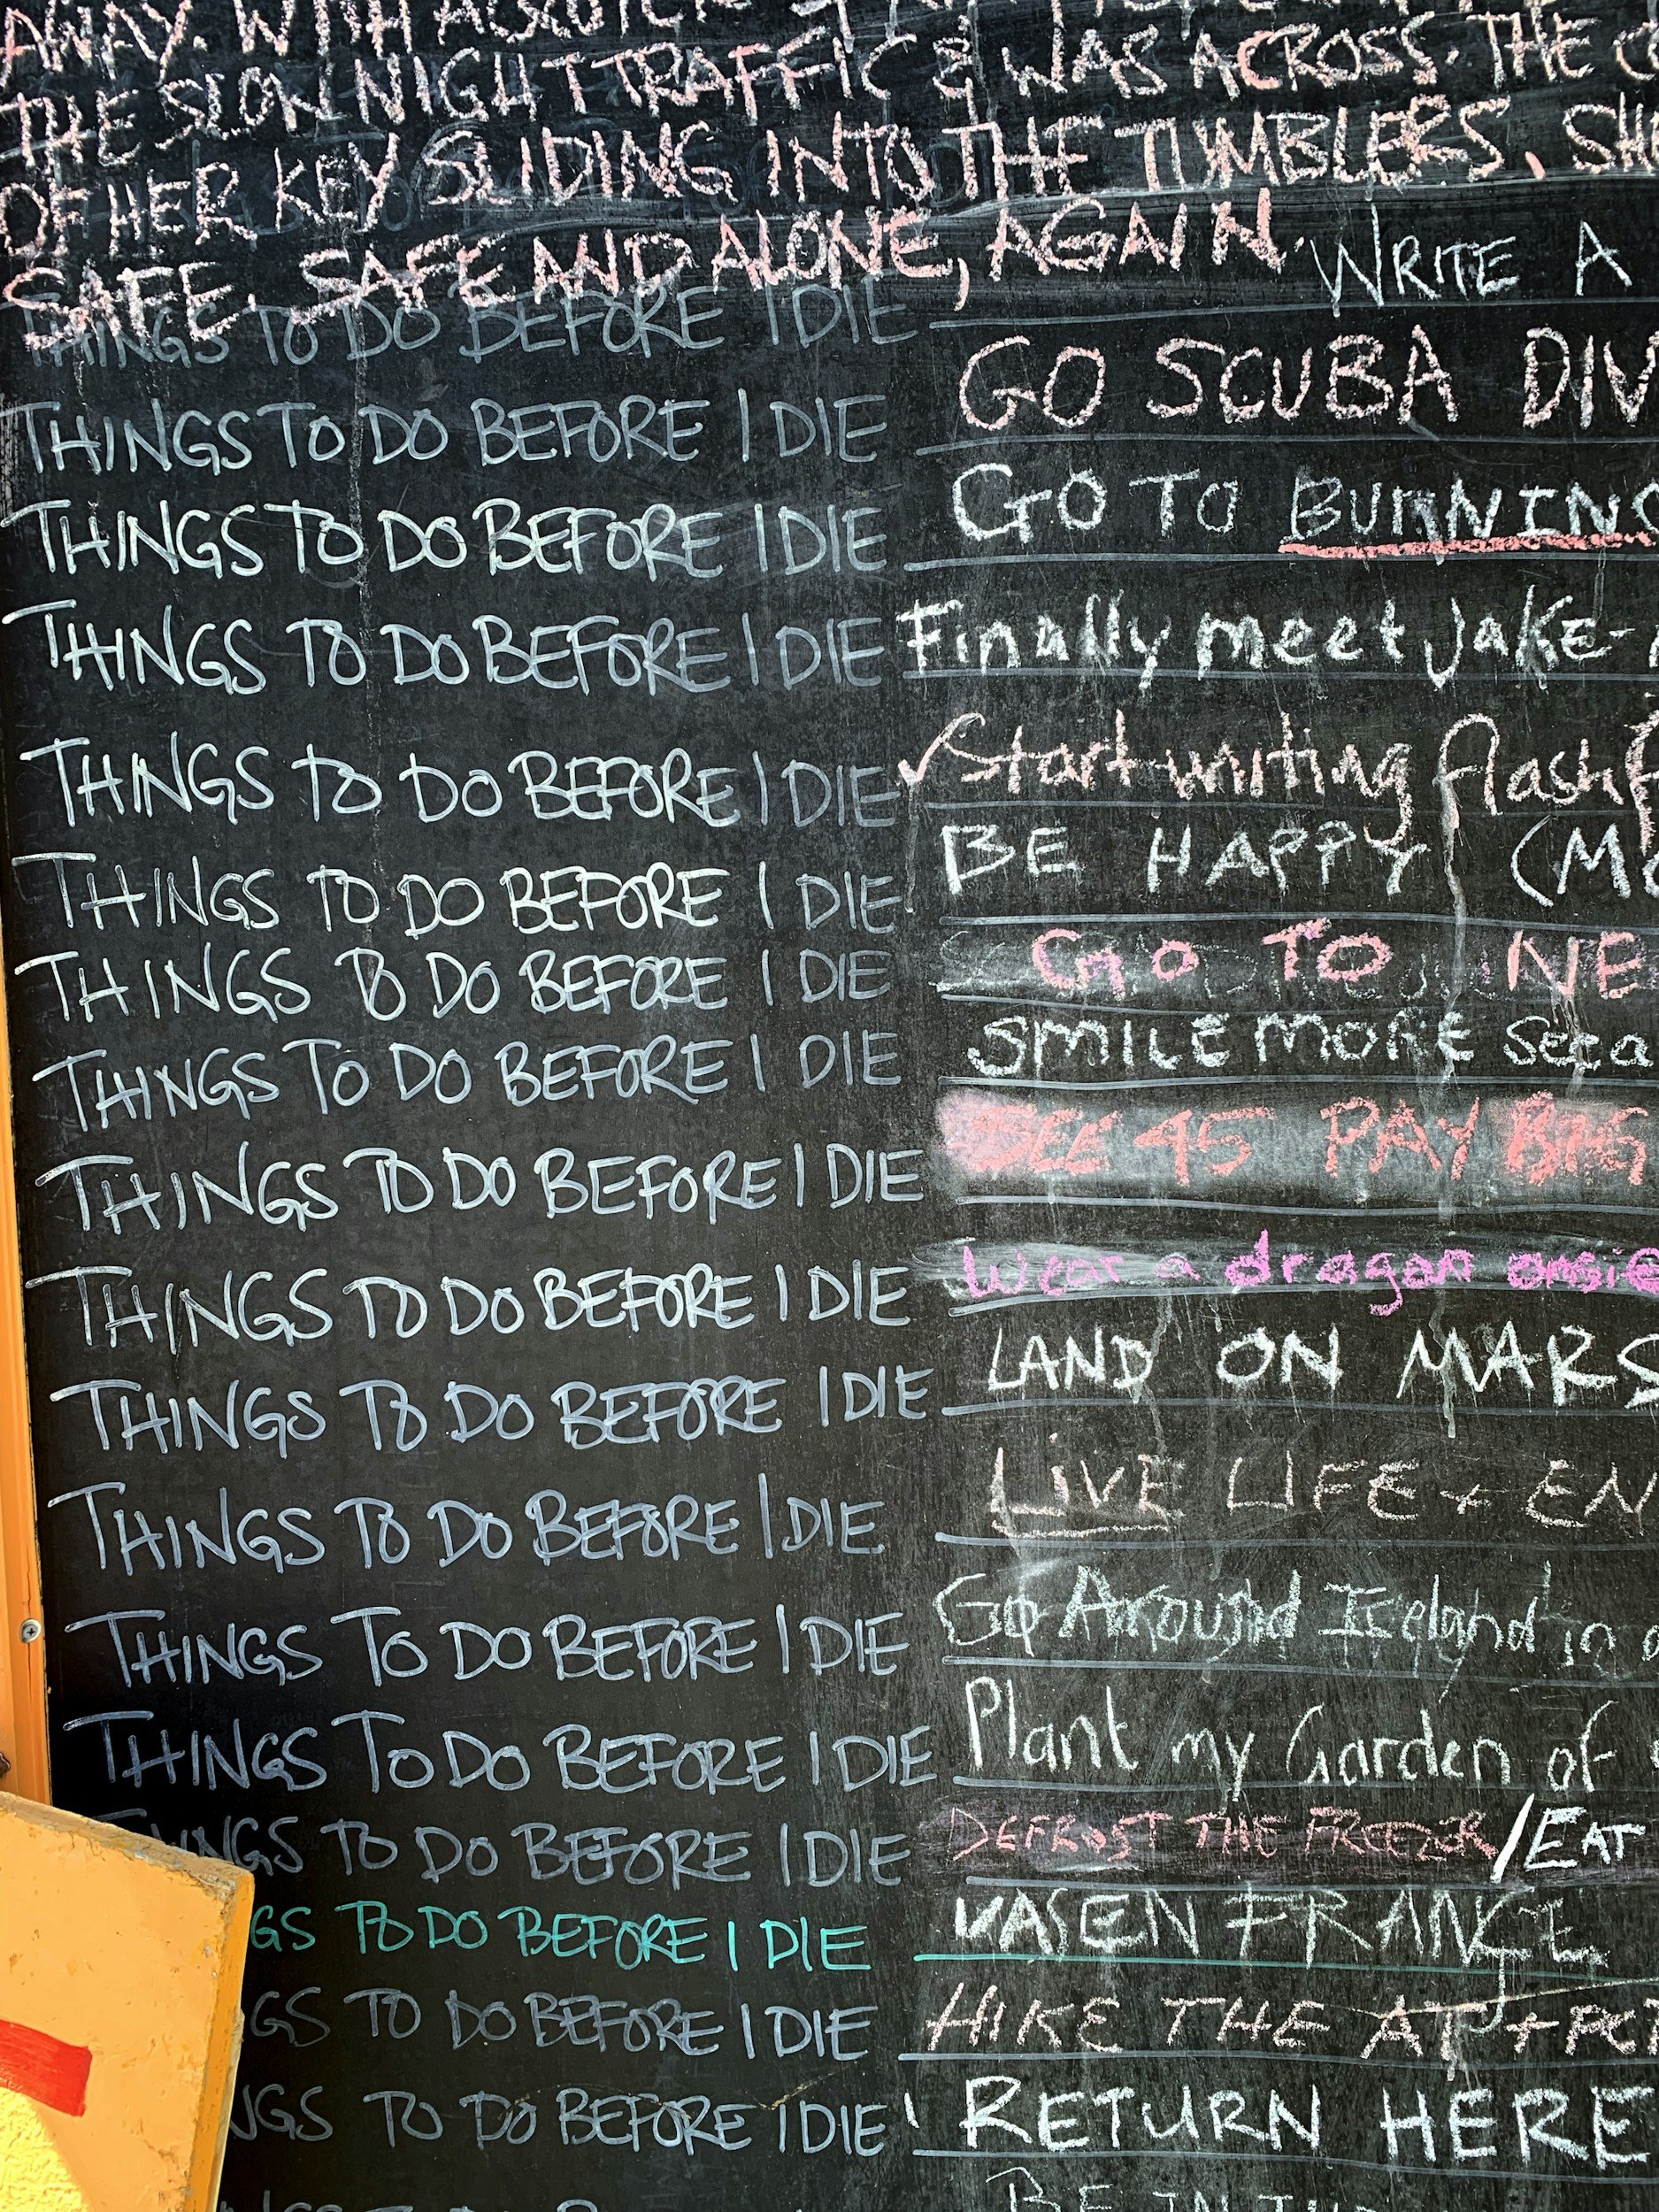 AWAY. WITH
THE SLOW NIGHT TRAFFIC & WAS ACROSS. THE
OF HER KEY SLIDING INTO THE TUMBLERS.
SAFE. SAFE AND ALONE, AGAIN.
THINGS TO DO BEFORE I DIE WRITE A
THINGS TO DO BEFORE I DIE GO SCUBA DIV
THINGS TO DO BEFORE I DIE GO TO BURNING
THINGS TO DO BEFORE I DIE Finally meet Jake-
THINGS TO DO BEFORE I DIE Start writing flash
THINGS TO DO BEFORE I DIE BE HAPPY (Mo
THINGS TO DO BEFORE I DIE GO TO NE
THINGS TO DO BEFORE I DIE SMILE MORE
THINGS TO DO BEFORE I DIE SEE 45 PAY BIG
THINGS TO DO BEFORE I DIE Wear a dragon onsie
THINGS TO DO BEFORE I DIE LAND ON MARS
THINGS TO DO BEFORE I DIE LIVE LIFE + EN
THINGS TO DO BEFORE I DIE Go Around Iceland in
THINGS TO DO BEFORE I DIE Plant my Garden of
THINGS TO DO BEFORE I DIE DEFROST THE FREEZER / EAT
GS TO DO BEFORE I DIE FRANCE
GS TO DO BEFORE I DIE HIKE THE AT +
NGS TO DO BEFORE I DIE RETURN HERE
BE IN